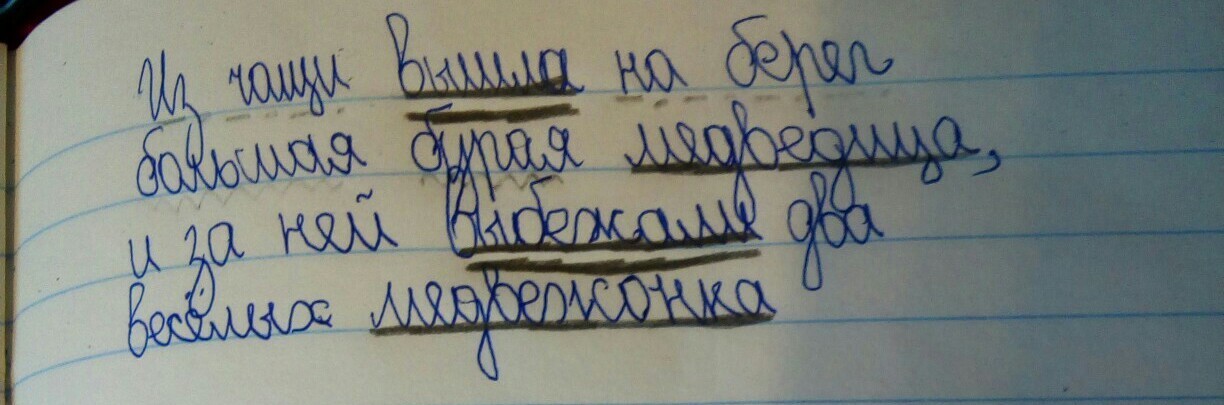 Из чащи вышла на берег
большая бурая медведица,
и за ней выбежали два
весёлых медвежонка